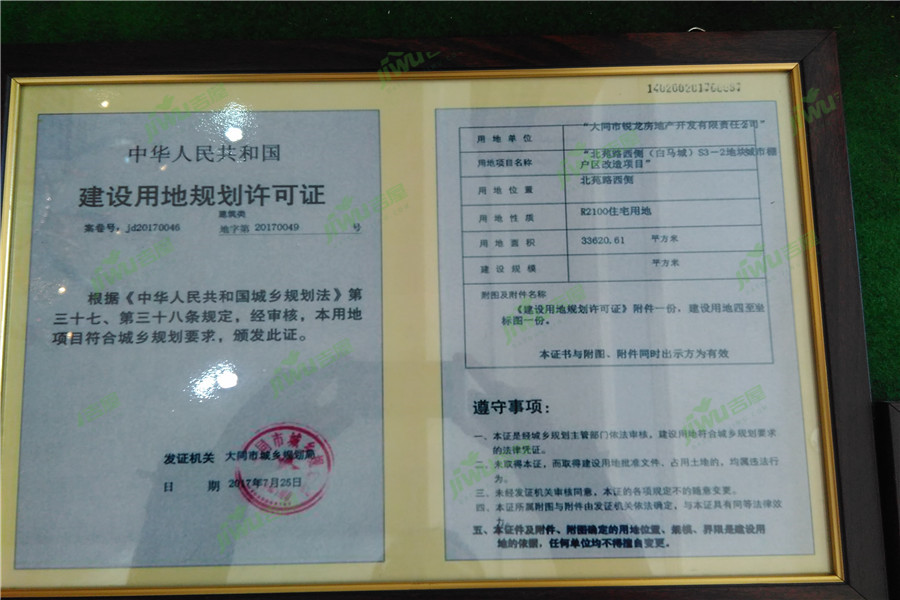 140200201700057
中华人民共和国
建设用地规划许可证
建筑类
案卷号：jd20170046 地字第 20170049 号
根据《中华人民共和国城乡规划法》第
三十七、第三十八条规定，经审核，本用地
项目符合城乡规划要求，颁发此证。
发证机关 大同市城乡规划局
日 期 2017年7月25日
用地单位 "大同市锐龙房地产开发有限责任公司"
用地项目名称 "北苑路西侧（白马城）S3-2地块城市棚
户区改造项目"
用地位置 北苑路西侧
用地性质 R2100住宅用地
用地面积 33620.61 平方米
建设规模 平方米
附图及附件名称
《建设用地规划许可证》附件一份，建设用地四至坐
标图一份。
本证书与附图、附件同时出示方为有效
遵守事项：
一、本证是经城乡规划主管部门依法审核，建设用地符合城乡规划要求
的法律凭证。
二、未取得本证，而取得建设用地批准文件、占用土地的，均属违法行
为。
三、未经发证机关审核同意，本证的各项规定不的随意变更。
四、本证所属附图与附件由发证机关依法确定，与本证具有同等法律效
力。
五、本证件及附件、附图确定的用地位置、规模、界限是建设用
地的依据，任何单位均不得擅自变更。
JIWU吉屋